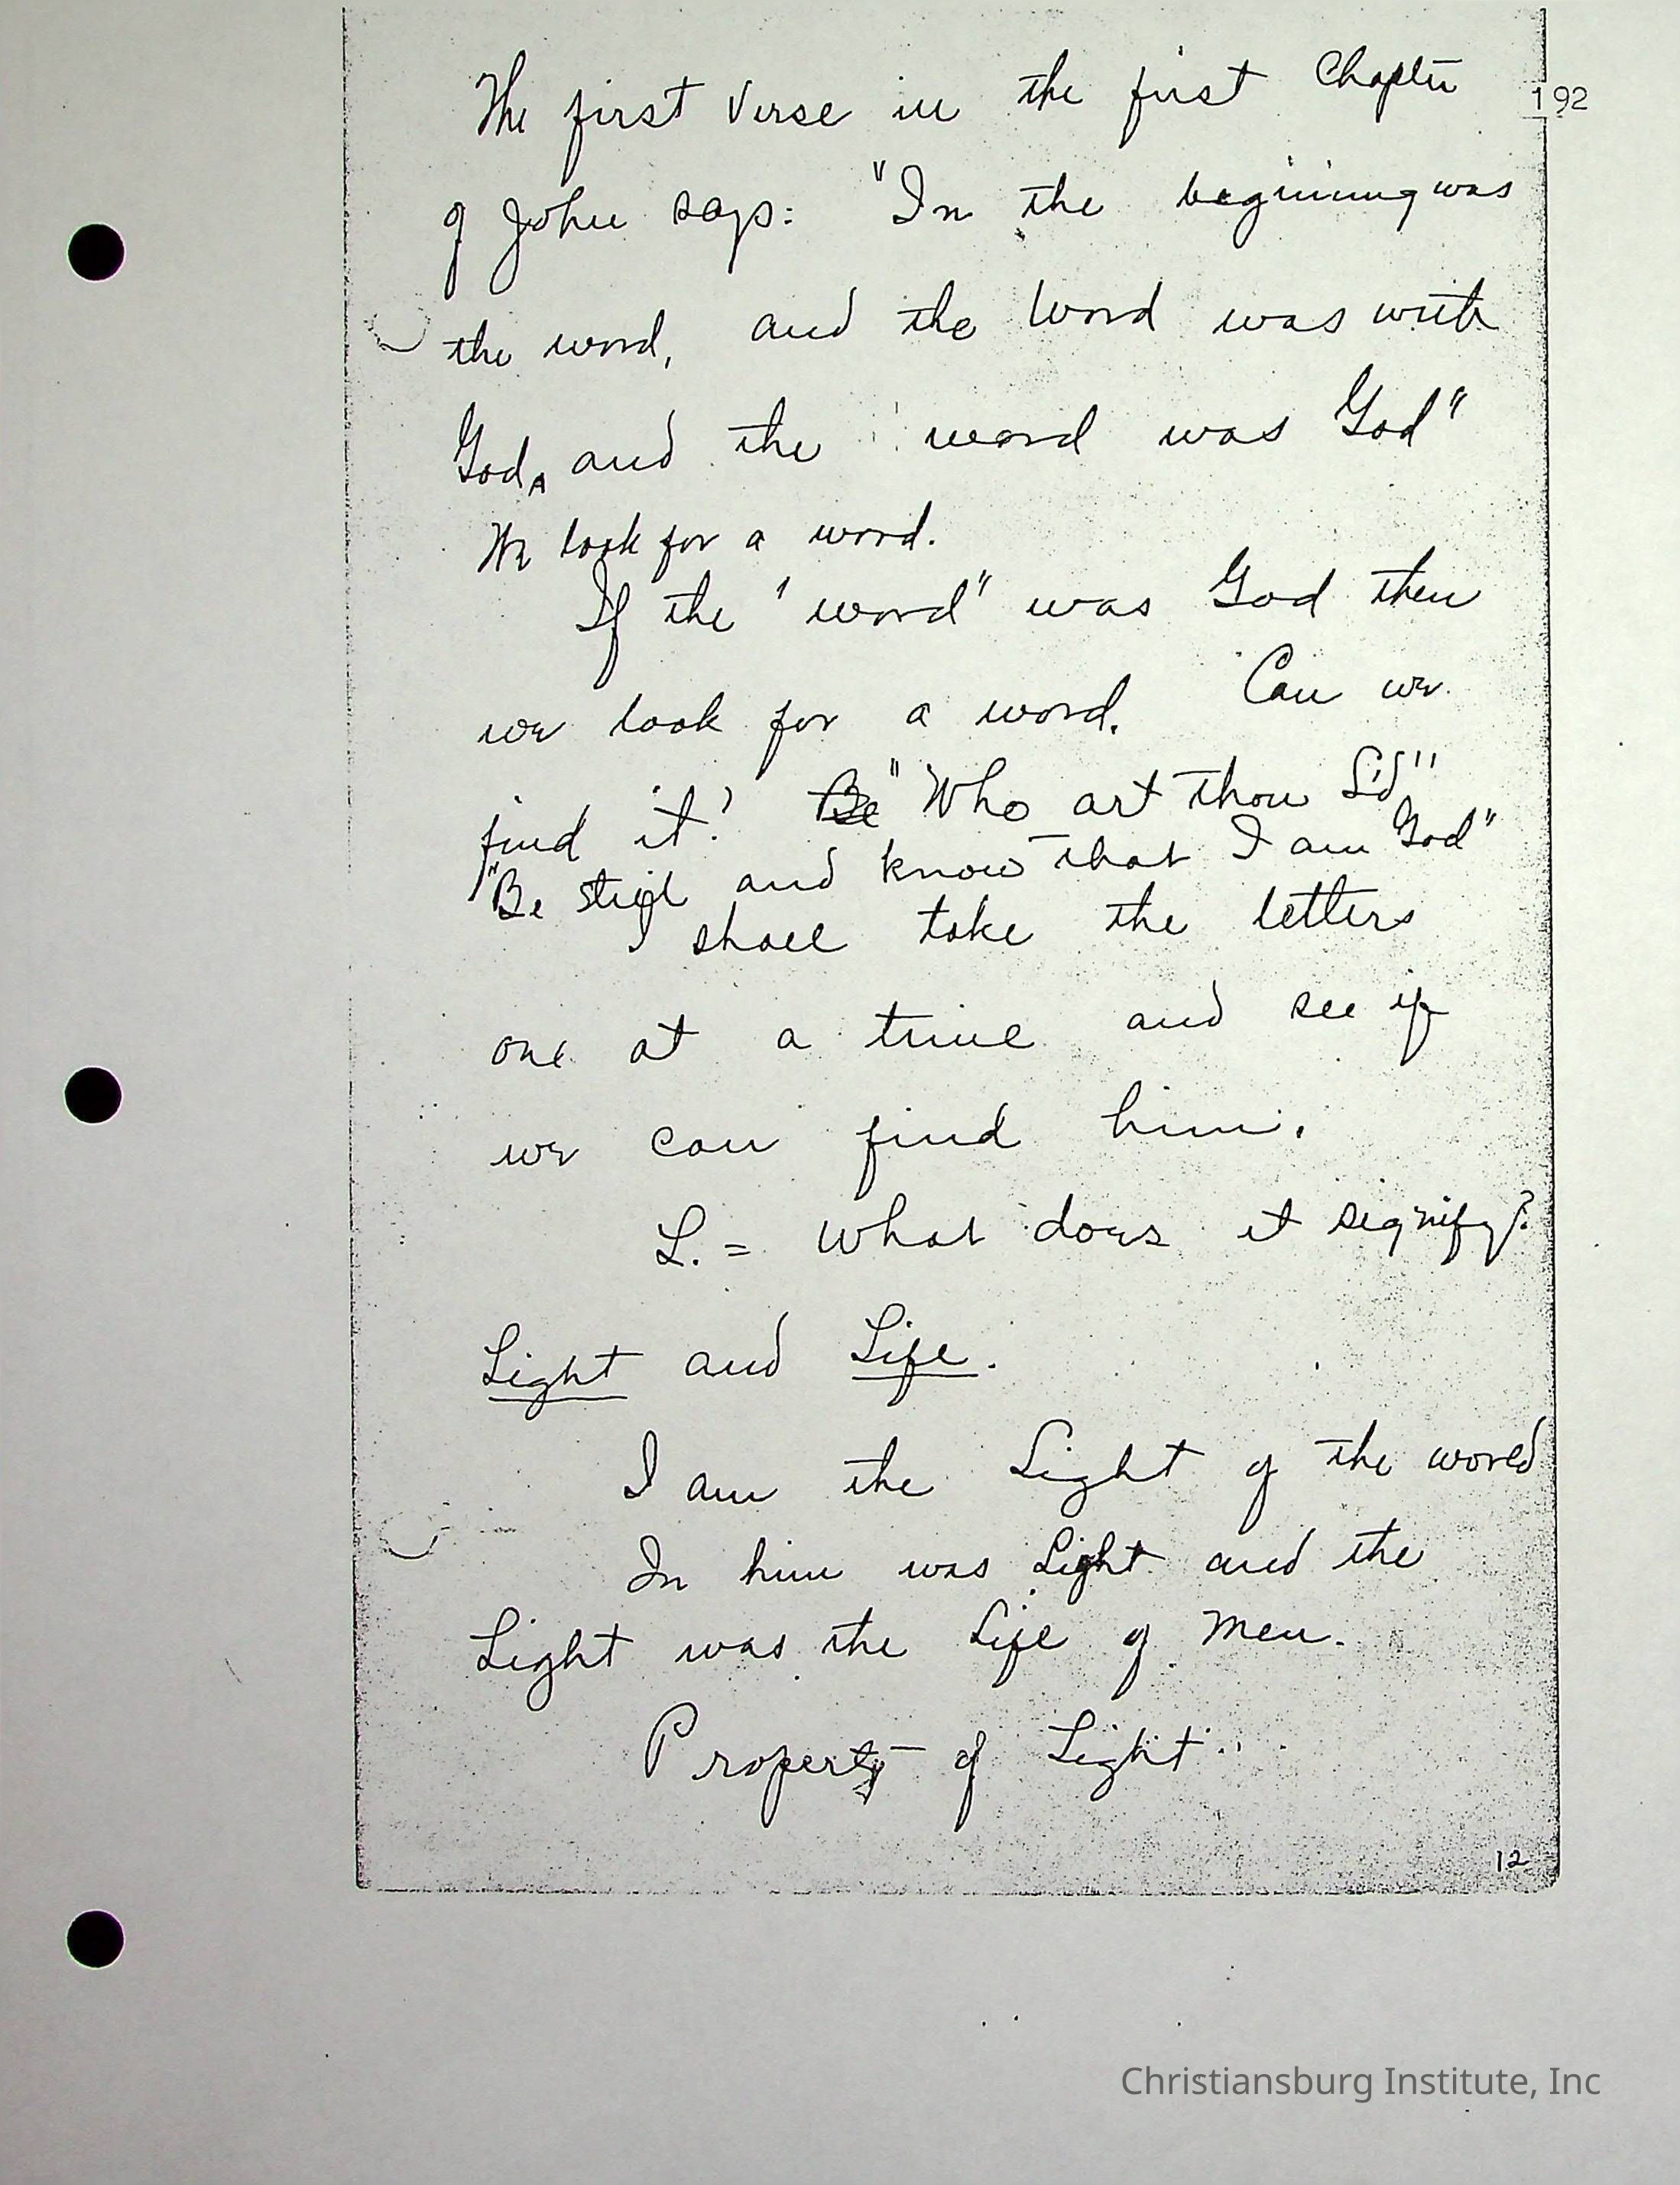 The first Verse in the first Chapter
192
of John says: "In the begining was
the word, and the Word was with
God, and the word was God"
We look for a word.
If the "word" was God then
we look for a word. Can we
find it? Be "Who art thou L'd"
"Be still and know that I am God"
I shall take the letters
one at a time and see if
we can find him.
L. = What does it signify?
Light and Life.
I am the Light of the world
In him was Light and the
Light was the Life of Men.
Property of Light
12
Christiansburg Institute, Inc